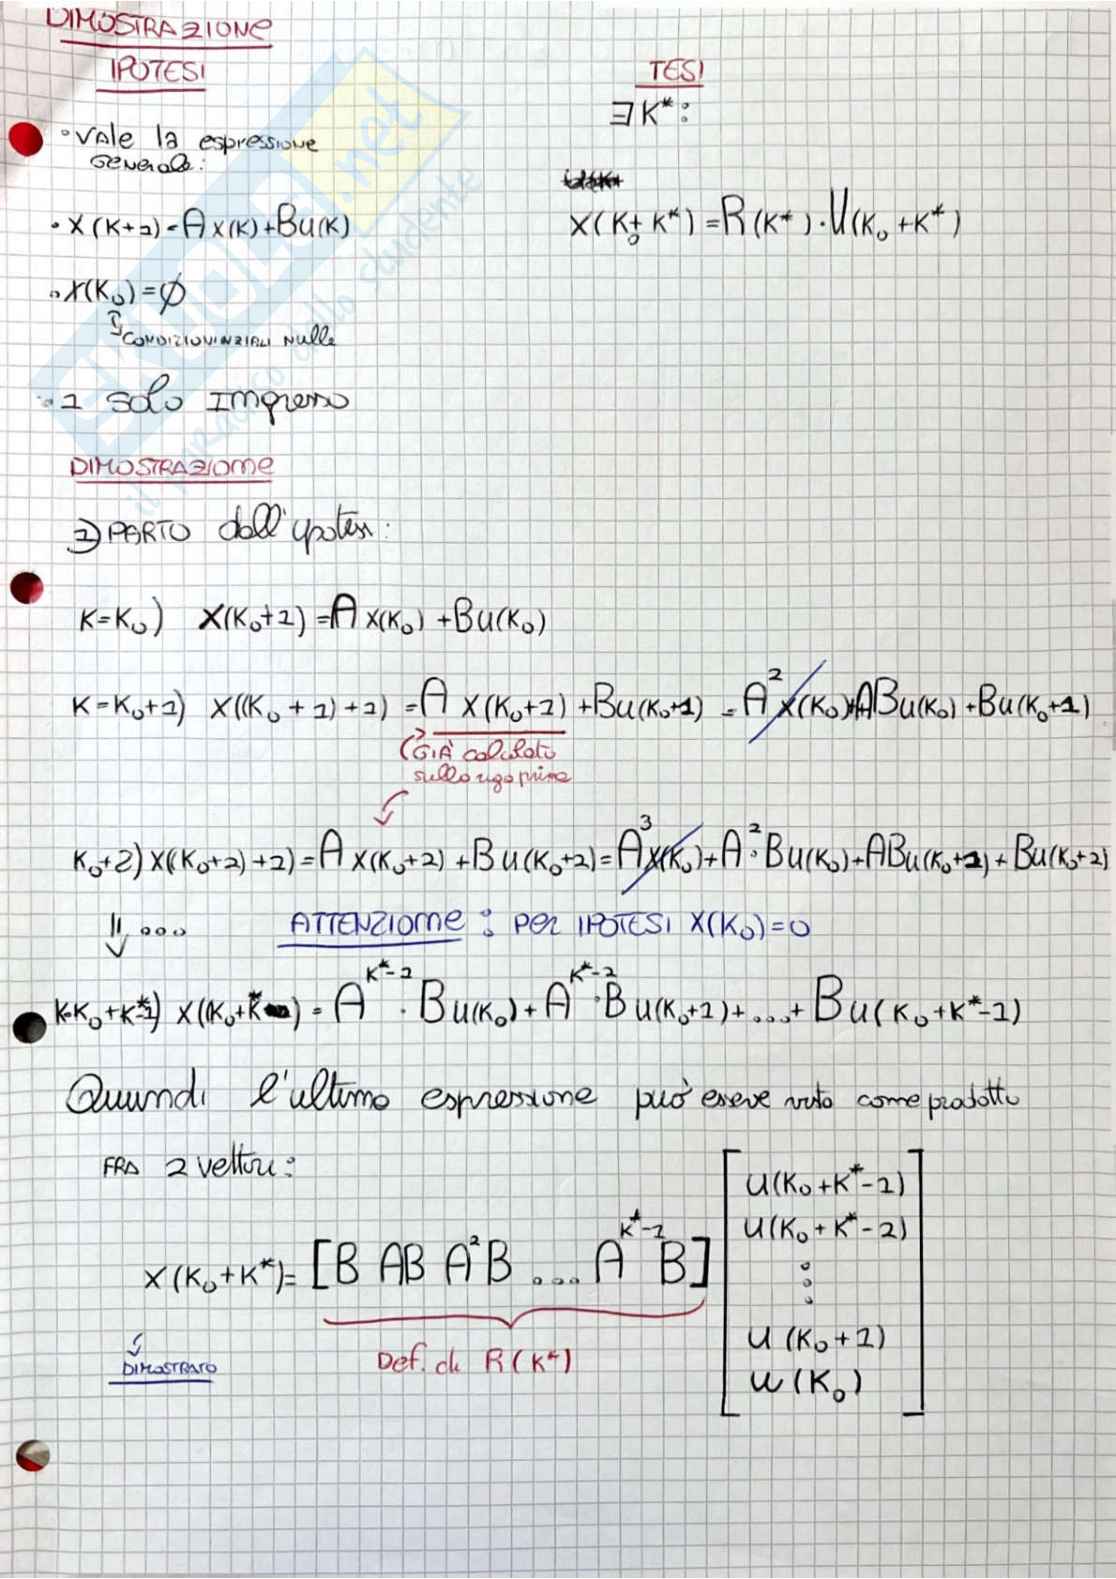 DIMOSTRAZIONE
IPOTESI
TESI
∃ K*:
• Vale la espressione
Generale:
• X(K+1) = A X(K) + Bu(K)
X(K₀+K*) = R(K*) · U(K₀+K*)
• X(K₀) = ∅
CONDIZIONI INZIALI Nulle
• 1 solo Ingresso
DIMOSTRAZIONe
1) PARTO dall'ipotesi:
K=K₀) X(K₀+1) = A X(K₀) + Bu(K₀)
K=K₀+1) X((K₀+1)+1) = A X(K₀+1) + Bu(K₀+1) = A² X(K₀) + ABu(K₀) + Bu(K₀+1)
GIÀ calcolato
sulla riga prima
K₀+2) X((K₀+2)+1) = A X(K₀+2) + Bu(K₀+2) = A³ X(K₀) + A²·Bu(K₀) + ABu(K₀+1) + Bu(K₀+2)
⇓ ... ATTENZIONe: PER IPOTESI X(K₀)=0
K=K₀+K*-1) X(K₀+K*) = A^{K*-1} · Bu(K₀) + A^{K*-2} · Bu(K₀+1) + ... + Bu(K₀+K*-1)
Quindi l'ultima espressione può essere vista come prodotto
FRA 2 vettori:
X(K₀+K*) = [B AB A²B .... A^{K*-1} B] [u(K₀+K*-1)
u(K₀+K*-2)
⋮
u(K₀+1)
u(K₀)]
Def. di R(K*)
DIMOSTRATO
SKUOLA.net
il paradiso dello studente